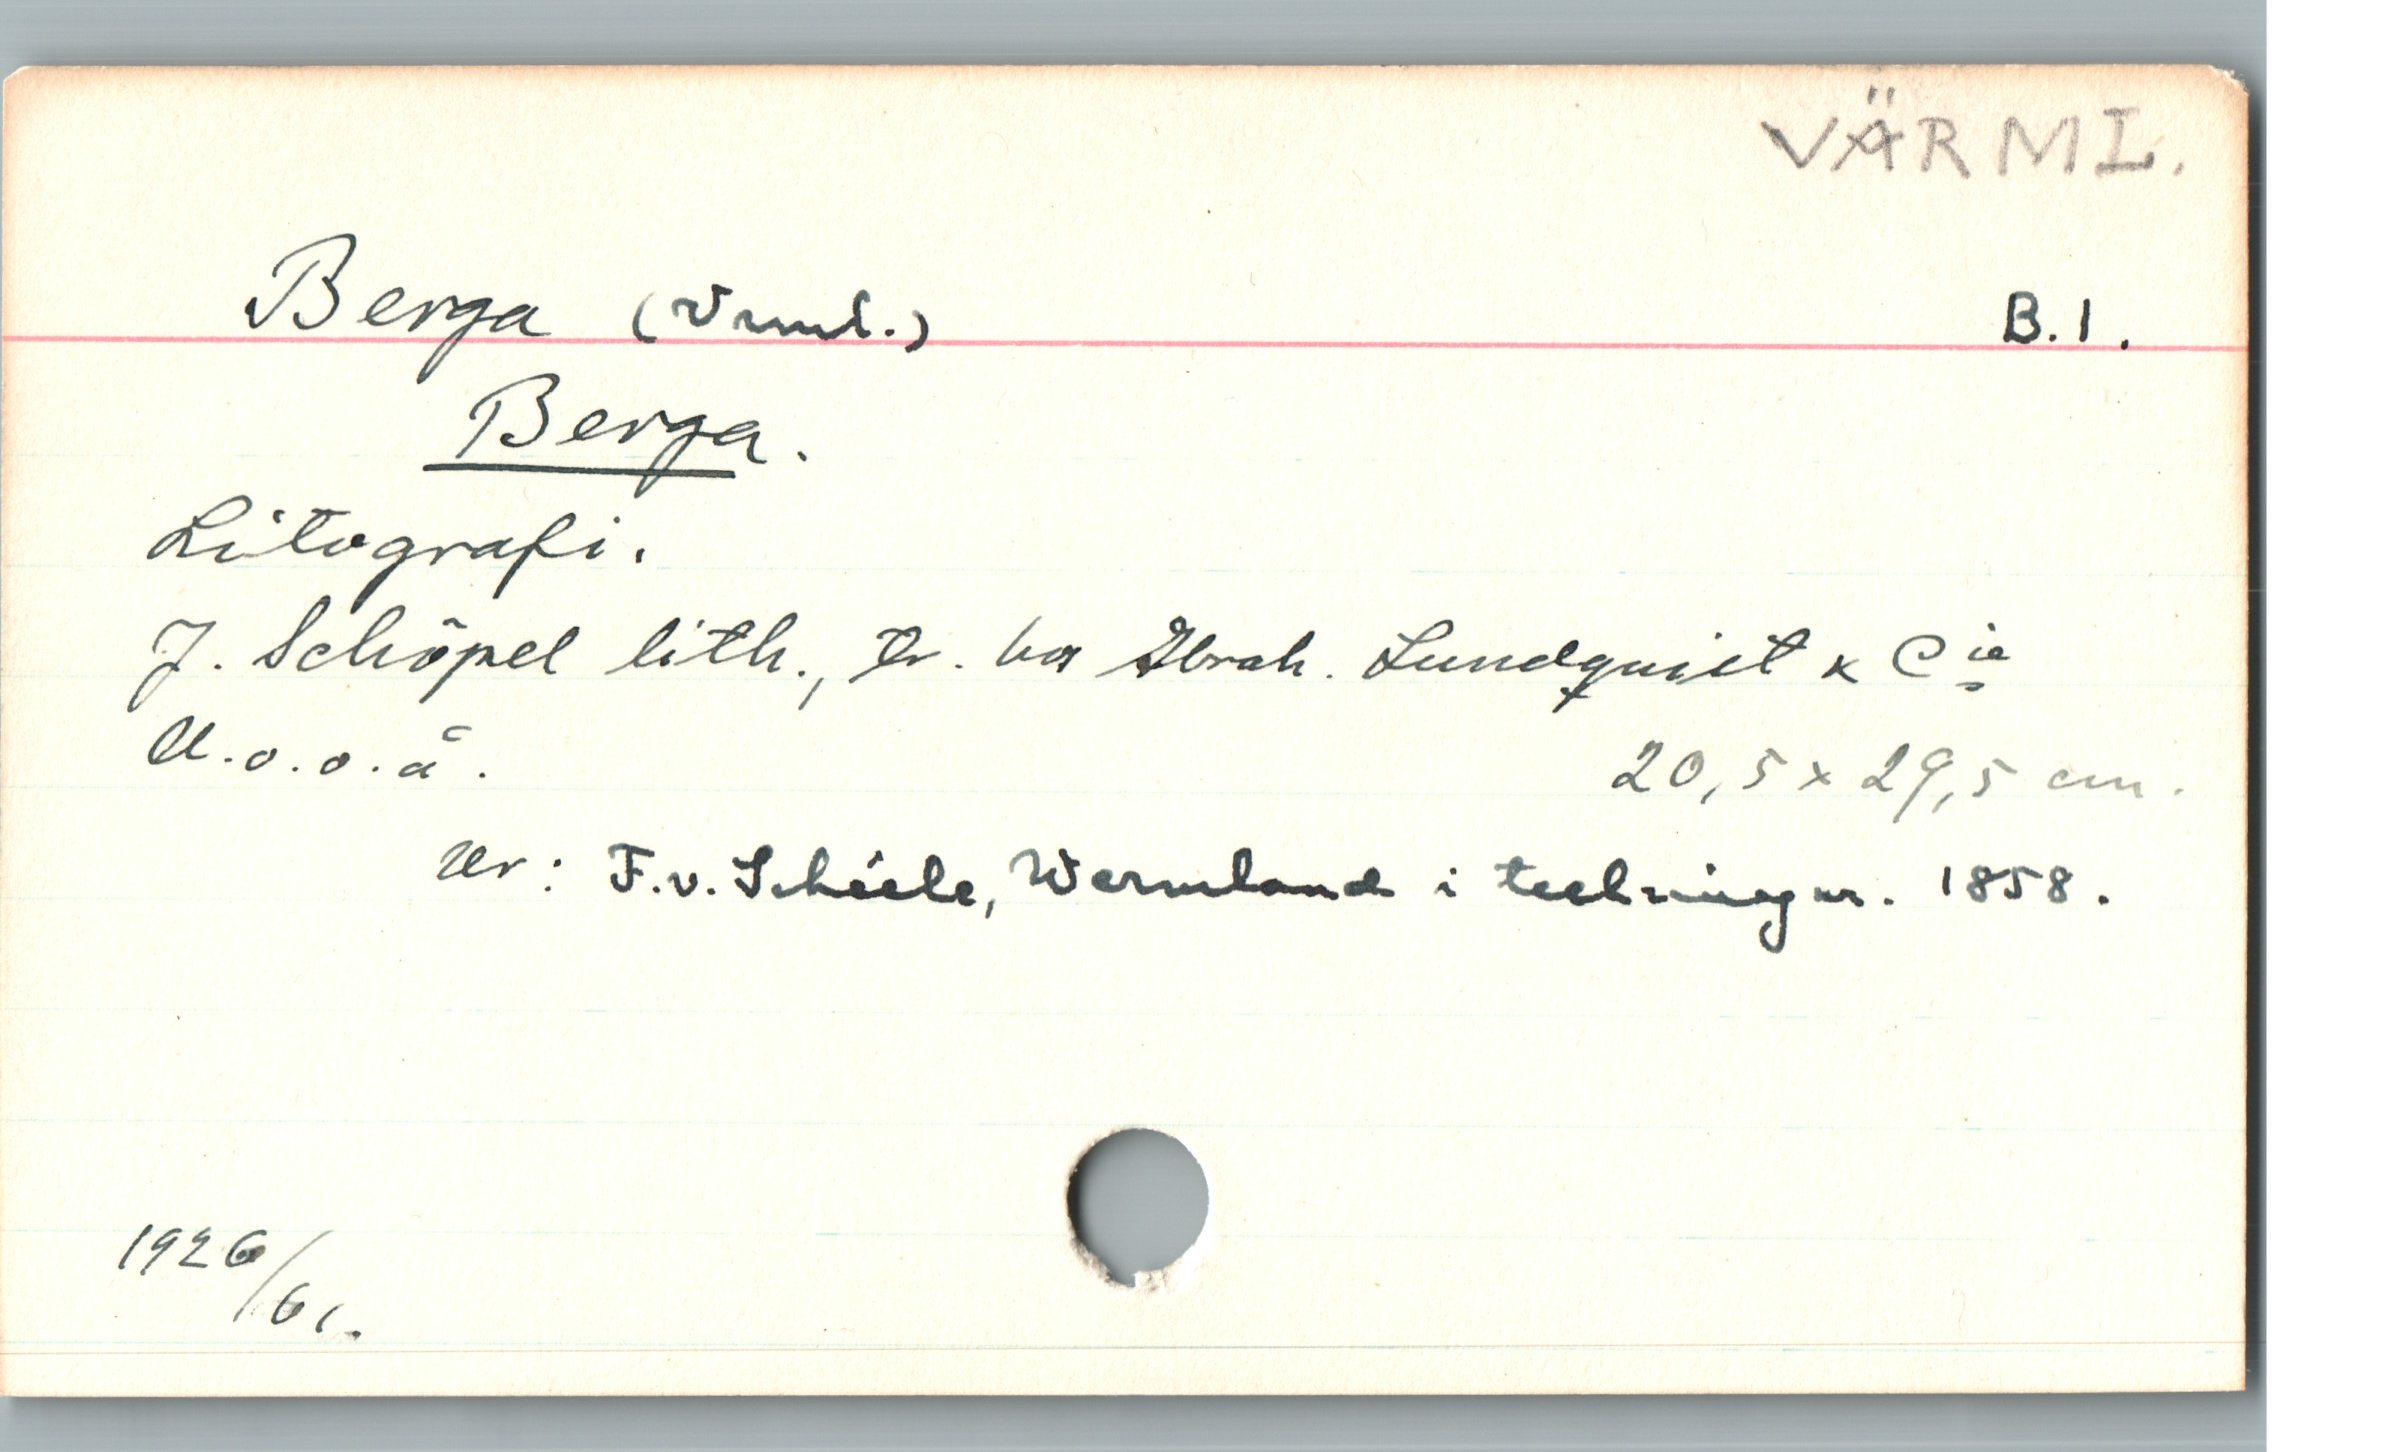 VÄRML.
Berga (Vrml.) B.1.
Berga.
Litografi.
J. Schöpel lith., Tr. hos Abrah. Lundquist & Cie
U.o.o.å. 20,5 x 29,5 cm.
Ur: F.v. Schéele, Wermland i teckningar. 1858.
1926/61.